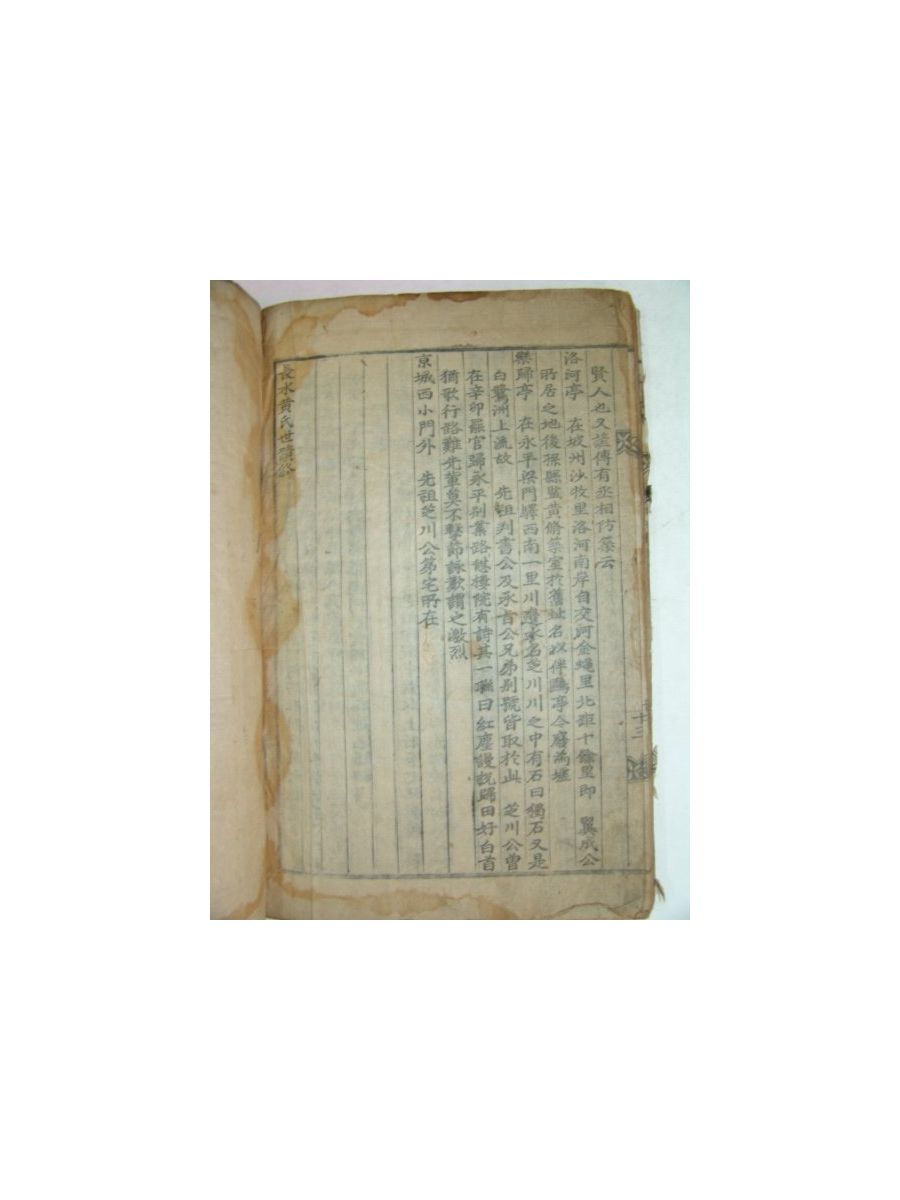 賢人也又諺傳有丞相防築云
洛河亭 在坡州沙牧里洛河南岸自交河金蠅里北距十餘里即 翼成公
所居之地後孫縣監黃脩築室於舊址名以伴鷗亭今廢為墟
樂歸亭 在永平梁門驛西南一里川邊水名芝川川之中有石曰獨石又是
白鷺洲上流故 先祖判書公及承旨公兄弟別號皆取於此 芝川公曾
在辛卯罷官歸永平別業路樓院有詩其一聯曰紅塵謾說歸田好白首
猶歌行路難先輩莫不擊節詠歎謂之激烈
京城西小門外 先祖芝川公第宅所在
長水黃氏世牘終
十三